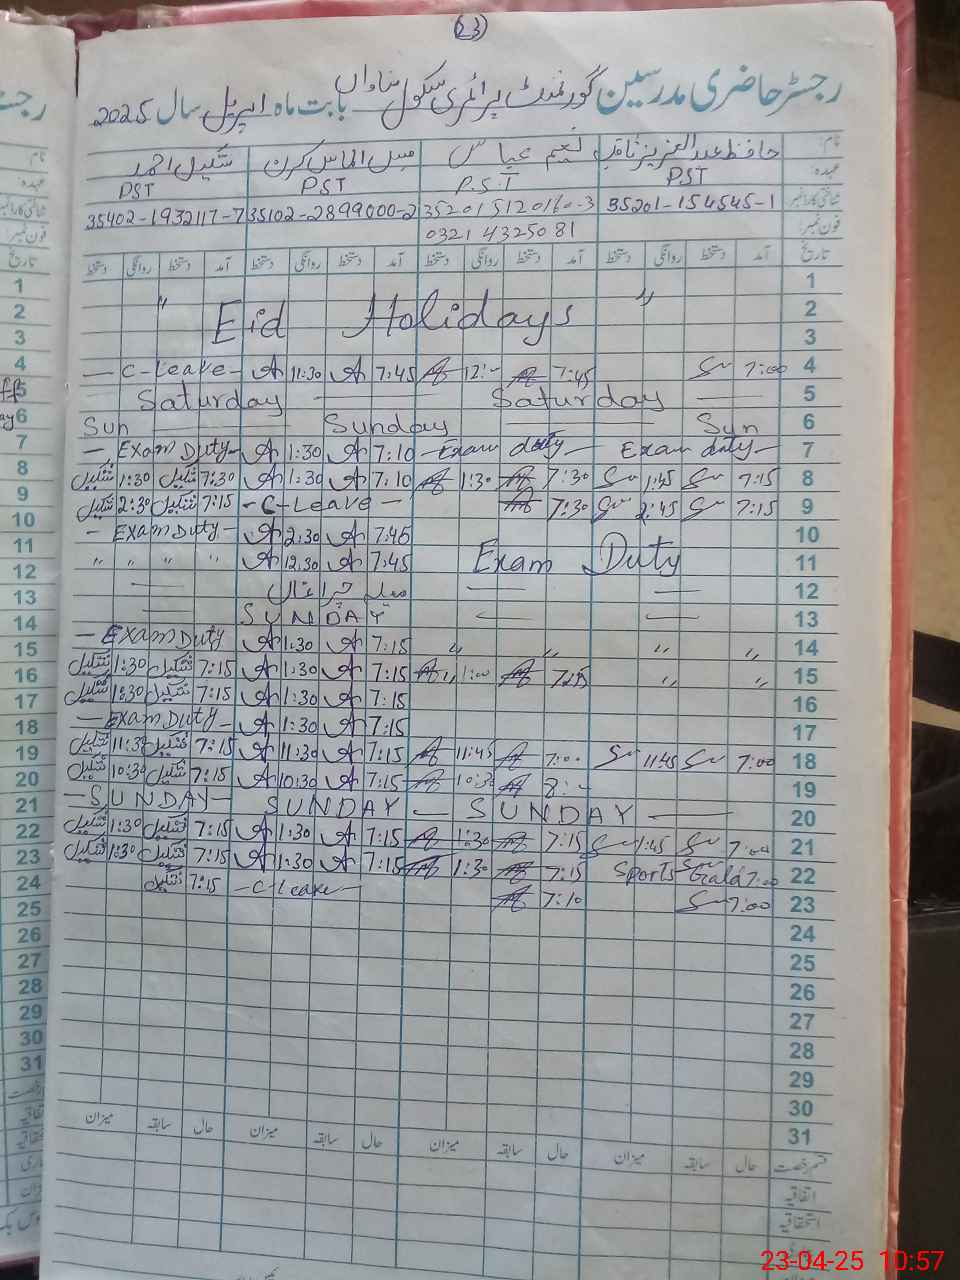 23
رجسٹر حاضری مدرسین گورنمنٹ پرائمری سکول بابت ماہ اپریل سال 2025
نام: حافظ عبدالعزیز ثاقب نعیم عباس مس الماس کرن شکیل احمد
عہدہ: PST P.S.T PST PST
شناختی کارڈ نمبر 35201-154545-1 352015120160-3 35102-2899000-2 35402-1932117-7
فون نمبر: 0321 4325081
تاریخ آمد دستخط روانگی دستخط آمد دستخط روانگی دستخط آمد دستخط روانگی دستخط آمد دستخط روانگی دستخط
1
2 " Eid Holidays "
3
4 — C-Leave - 11:30 7:45 12:- 7:45 7:00 4
5 Saturday — Saturday — 5
6 Sun Sunday — Sun 6
7 — Exam Duty - 1:30 7:10 — Exam duty — Exam duty — 7
8 شکیل 1:30 شکیل 7:30 1:30 7:10 1:30 7:30 1:45 7:15 8
9 شکیل 2:30 شکیل 7:15 - C-Leave - 7:30 2:45 7:15 9
10 - Exam Duty - 2:30 7:45 10
11 " " " " 12:30 7:45 Exam Duty 11
12 — میلہ چراغاں — — 12
13 — SUNDAY — — 13
14 — Exam Duty 1:30 7:15 " " " " 14
15 شکیل 1:30 شکیل 7:15 1:30 7:15 1:00 " " 15
16 شکیل 1:30 شکیل 7:15 1:30 7:15 16
17 — Exam Duty - 1:30 7:15 17
18 شکیل 11:30 شکیل 7:15 11:30 7:15 11:45 7:00 11:45 7:00 18
19 شکیل 10:30 شکیل 7:15 10:30 7:15 10:30 8:- 19
20 — SUNDAY — SUNDAY — SUNDAY — 20
21 شکیل 1:30 شکیل 7:15 1:30 7:15 1:30 7:15 1:45 7:00 21
22 شکیل 1:30 شکیل 7:15 1:30 7:15 1:30 7:15 Sports Gala 7:00 22
23 شکیل 7:15 - C-Leave - 7:10 7:00 23
24
25
26
27
28
29
30
31
قسم رخصت حال سابقہ میزان حال سابقہ میزان حال سابقہ میزان حال سابقہ میزان
اتفاقیہ
استحقاقیہ
23-04-25 10:57